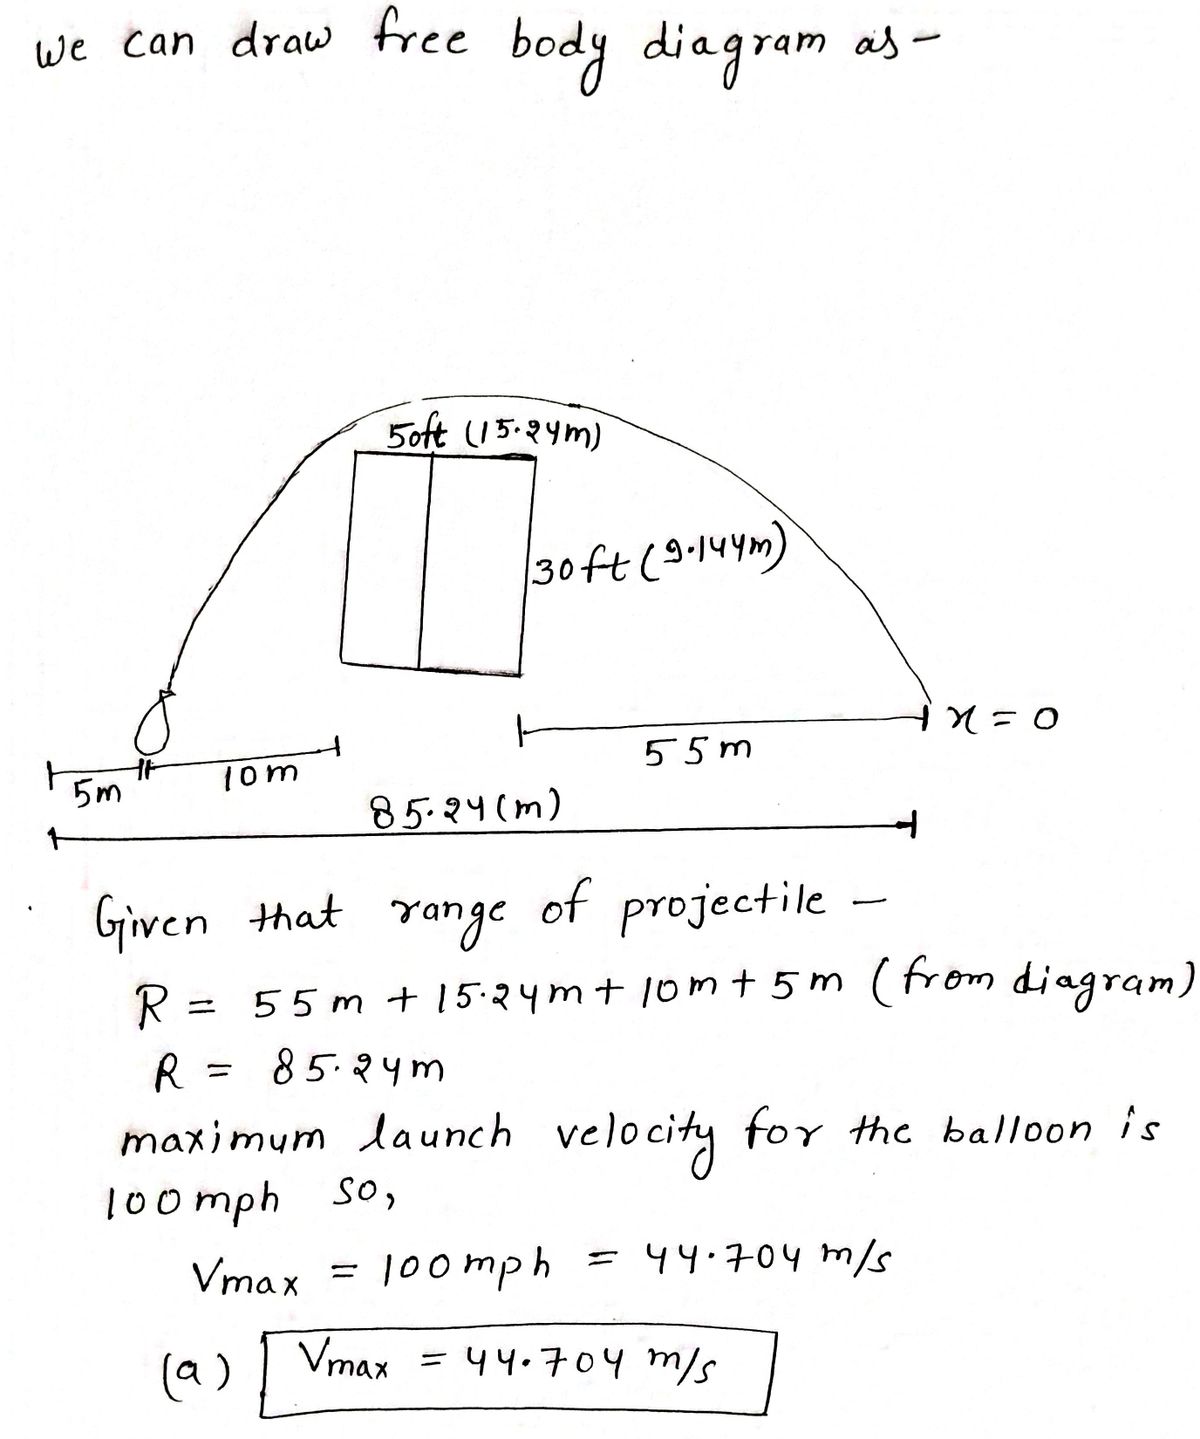 we can draw free body diagram as -
50ft (15.24m)
30ft (9.144m)
x = 0
55m
5m
10m
85.24(m)
Given that range of projectile -
R = 55m + 15.24m + 10m + 5m (from diagram)
R = 85.24m
maximum launch velocity for the balloon is
100mph so,
Vmax = 100mph = 44.704 m/s
(a) Vmax = 44.704 m/s